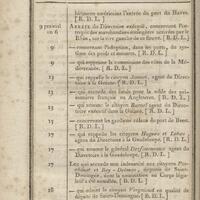 bâtimens entravaient l'entrée du port du Havre.
[R. D. L.]
9 prairial an 6
ARRÊTÉ du Directoire exécutif, concernant
des marchandises étrangères arrivées par le
Rhin, sur la rive gauche de ce fleuve. [R. D. L.]
9
concernant l'adoption, dans les ports, du système
des poids et mesures. [R. D. L.]
9
qui supprime la commission des côtes de la Méditerranée.
[R. D. L.]
13
qui rappelle le citoyen agent du Directoire
à la Guiane. [R. D. L.]
13
qui accorde des fonds pour la solde des prisonniers
français à [R. D. L.]
13
qui nomme le citoyen Burnel agent du Directoire
exécutif dans la Guiane. [R. D. L.]
15
concernant les gardiens du port de Brest.
[R. D. L.]
17
qui rappelle les citoyens Hugues et Lebas,
agens du Directoire à la Guadeloupe. [R. D. L.]
17
qui nomme le général Desfourneaux agent du
Directoire à la Guadeloupe. [R. D. L.]
17
LOI qui accorde une indemnité aux citoyens
et Rey-Delmas, députés de Saint-Domingue,
dont la nomination au Corps législatif
a été annullée. [B. L.]
18
qui admet le citoyen en qualité de
député de Saint-Domingue. [B. L.]